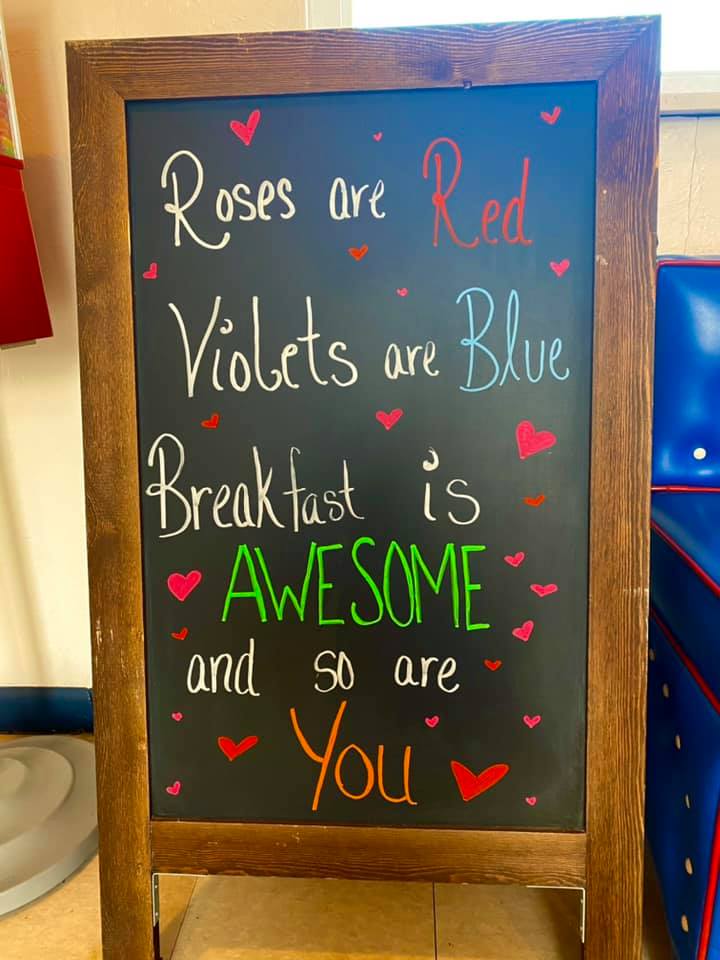 Roses are Red
Violets are Blue
Breakfast is
AWESOME
and so are
You